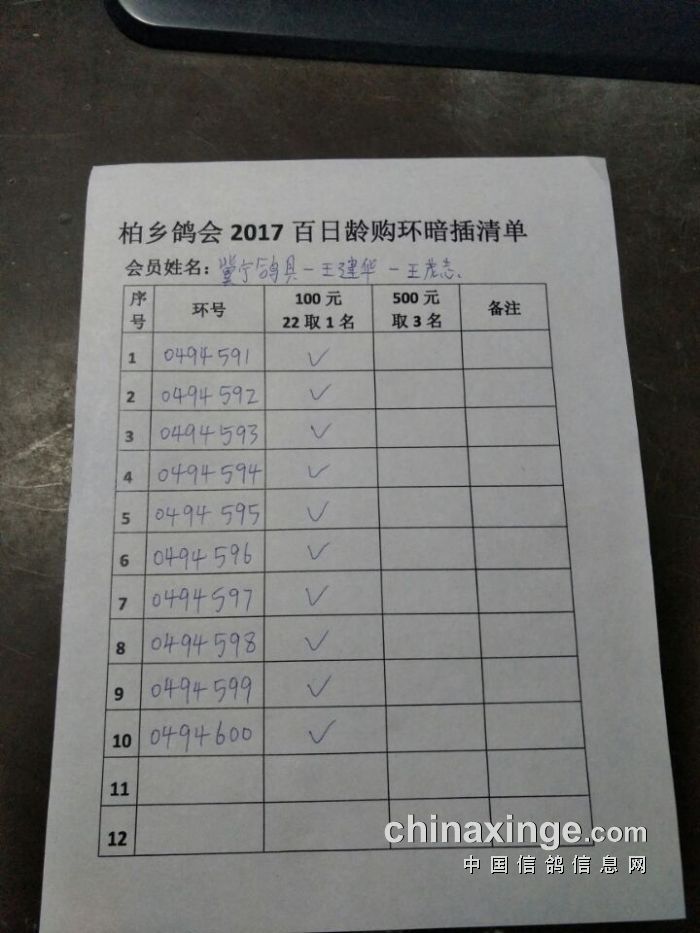 柏乡鸽会 2017 百日龄购环暗插清单
会员姓名：冀宁鸽具－王建华－王茂志
序号 环号 100 元 22 取 1 名 500 元 取 3 名 备注
1 0494591 ✓
2 0494592 ✓
3 0494593 ✓
4 0494594 ✓
5 0494595 ✓
6 0494596 ✓
7 0494597 ✓
8 0494598 ✓
9 0494599 ✓
10 0494600 ✓
11
12
chinaxinge.com
中国信鸽信息网